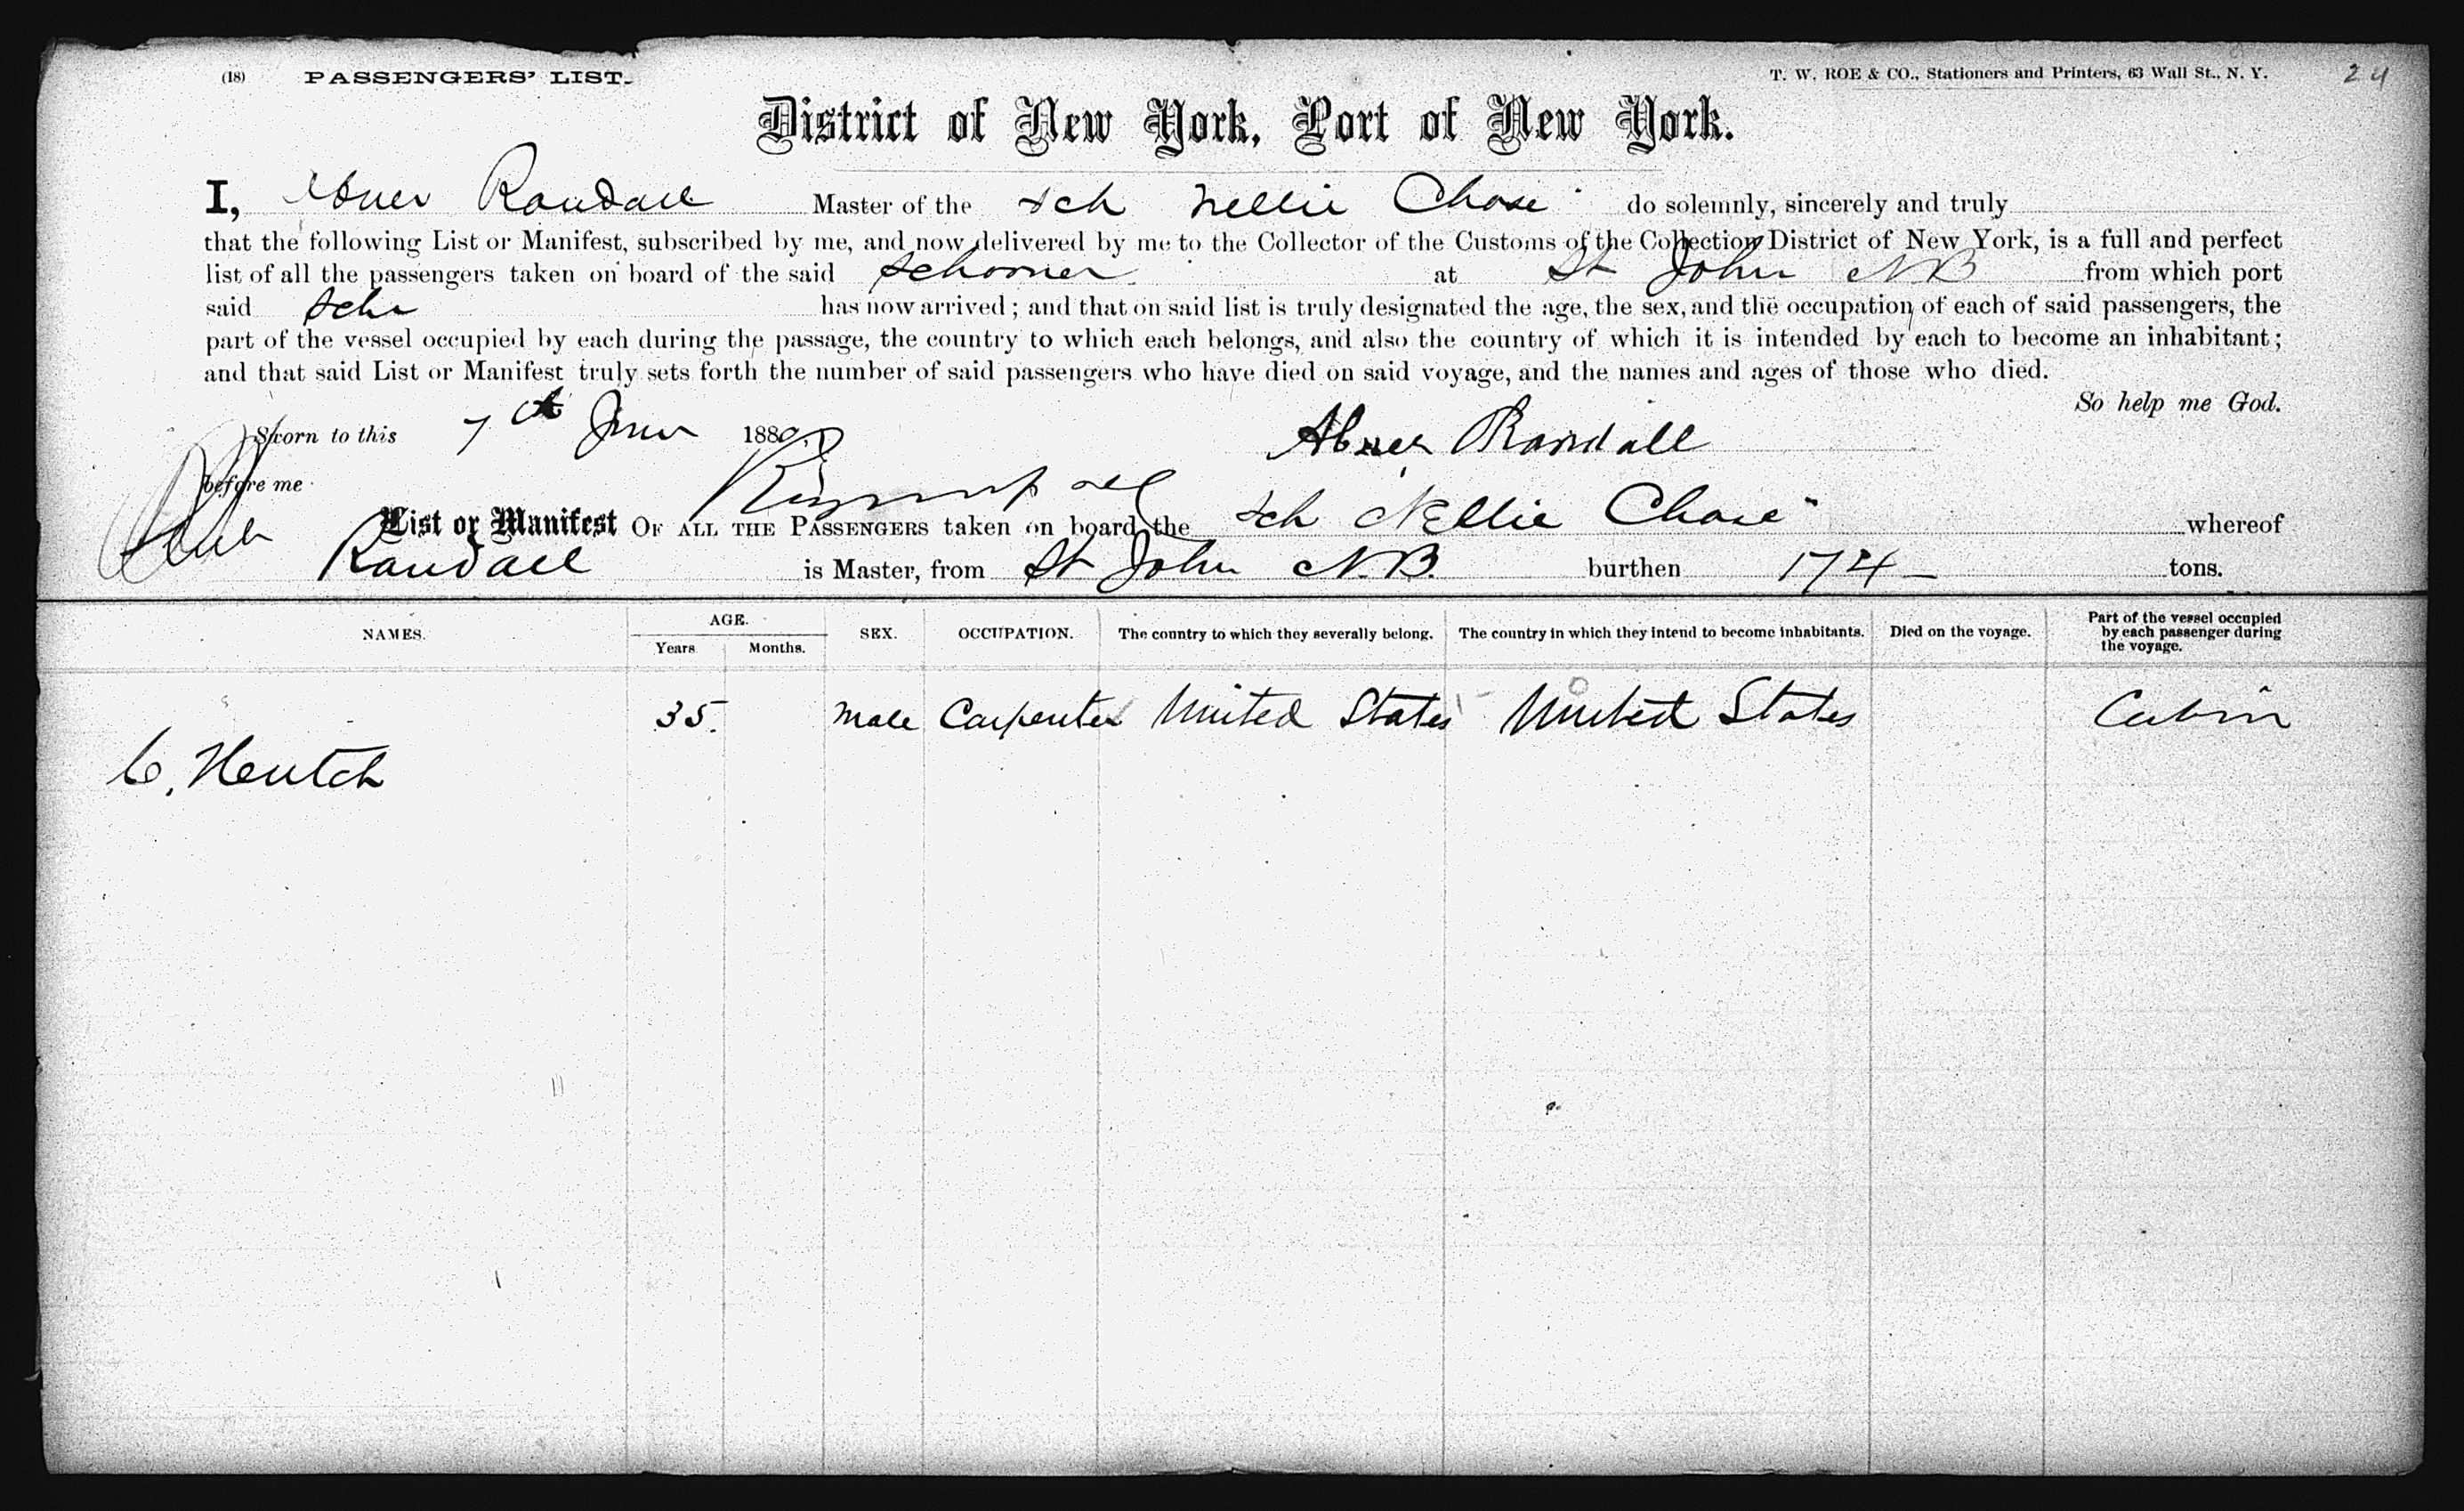 (18) PASSENGERS' LIST. T. W. ROE & CO., Stationers and Printers, 63 Wall St., N. Y. 24
District of New York, Port of New York.
I, Abner Randall Master of the Sch Nellie Chase do solemnly, sincerely and truly
that the following List or Manifest, subscribed by me, and now delivered by me to the Collector of the Customs of the Collection District of New York, is a full and perfect
list of all the passengers taken on board of the said Schooner at St John NB from which port
said Schr has now arrived; and that on said list is truly designated the age, the sex, and the occupation of each of said passengers, the
part of the vessel occupied by each during the passage, the country to which each belongs, and also the country of which it is intended by each to become an inhabitant;
and that said List or Manifest truly sets forth the number of said passengers who have died on said voyage, and the names and ages of those who died.
So help me God.
Sworn to this 7th June 1880, Abner Randall
before me
List or Manifest OF ALL THE PASSENGERS taken on board the Sch Nellie Chase whereof
Randall is Master, from St John N.B. burthen 174 tons.
NAMES. AGE. Years Months. SEX. OCCUPATION. The country to which they severally belong. The country in which they intend to become inhabitants. Died on the voyage. Part of the vessel occupied by each passenger during the voyage.
35. Male Carpenter United States United States Cabin
C. Heutch